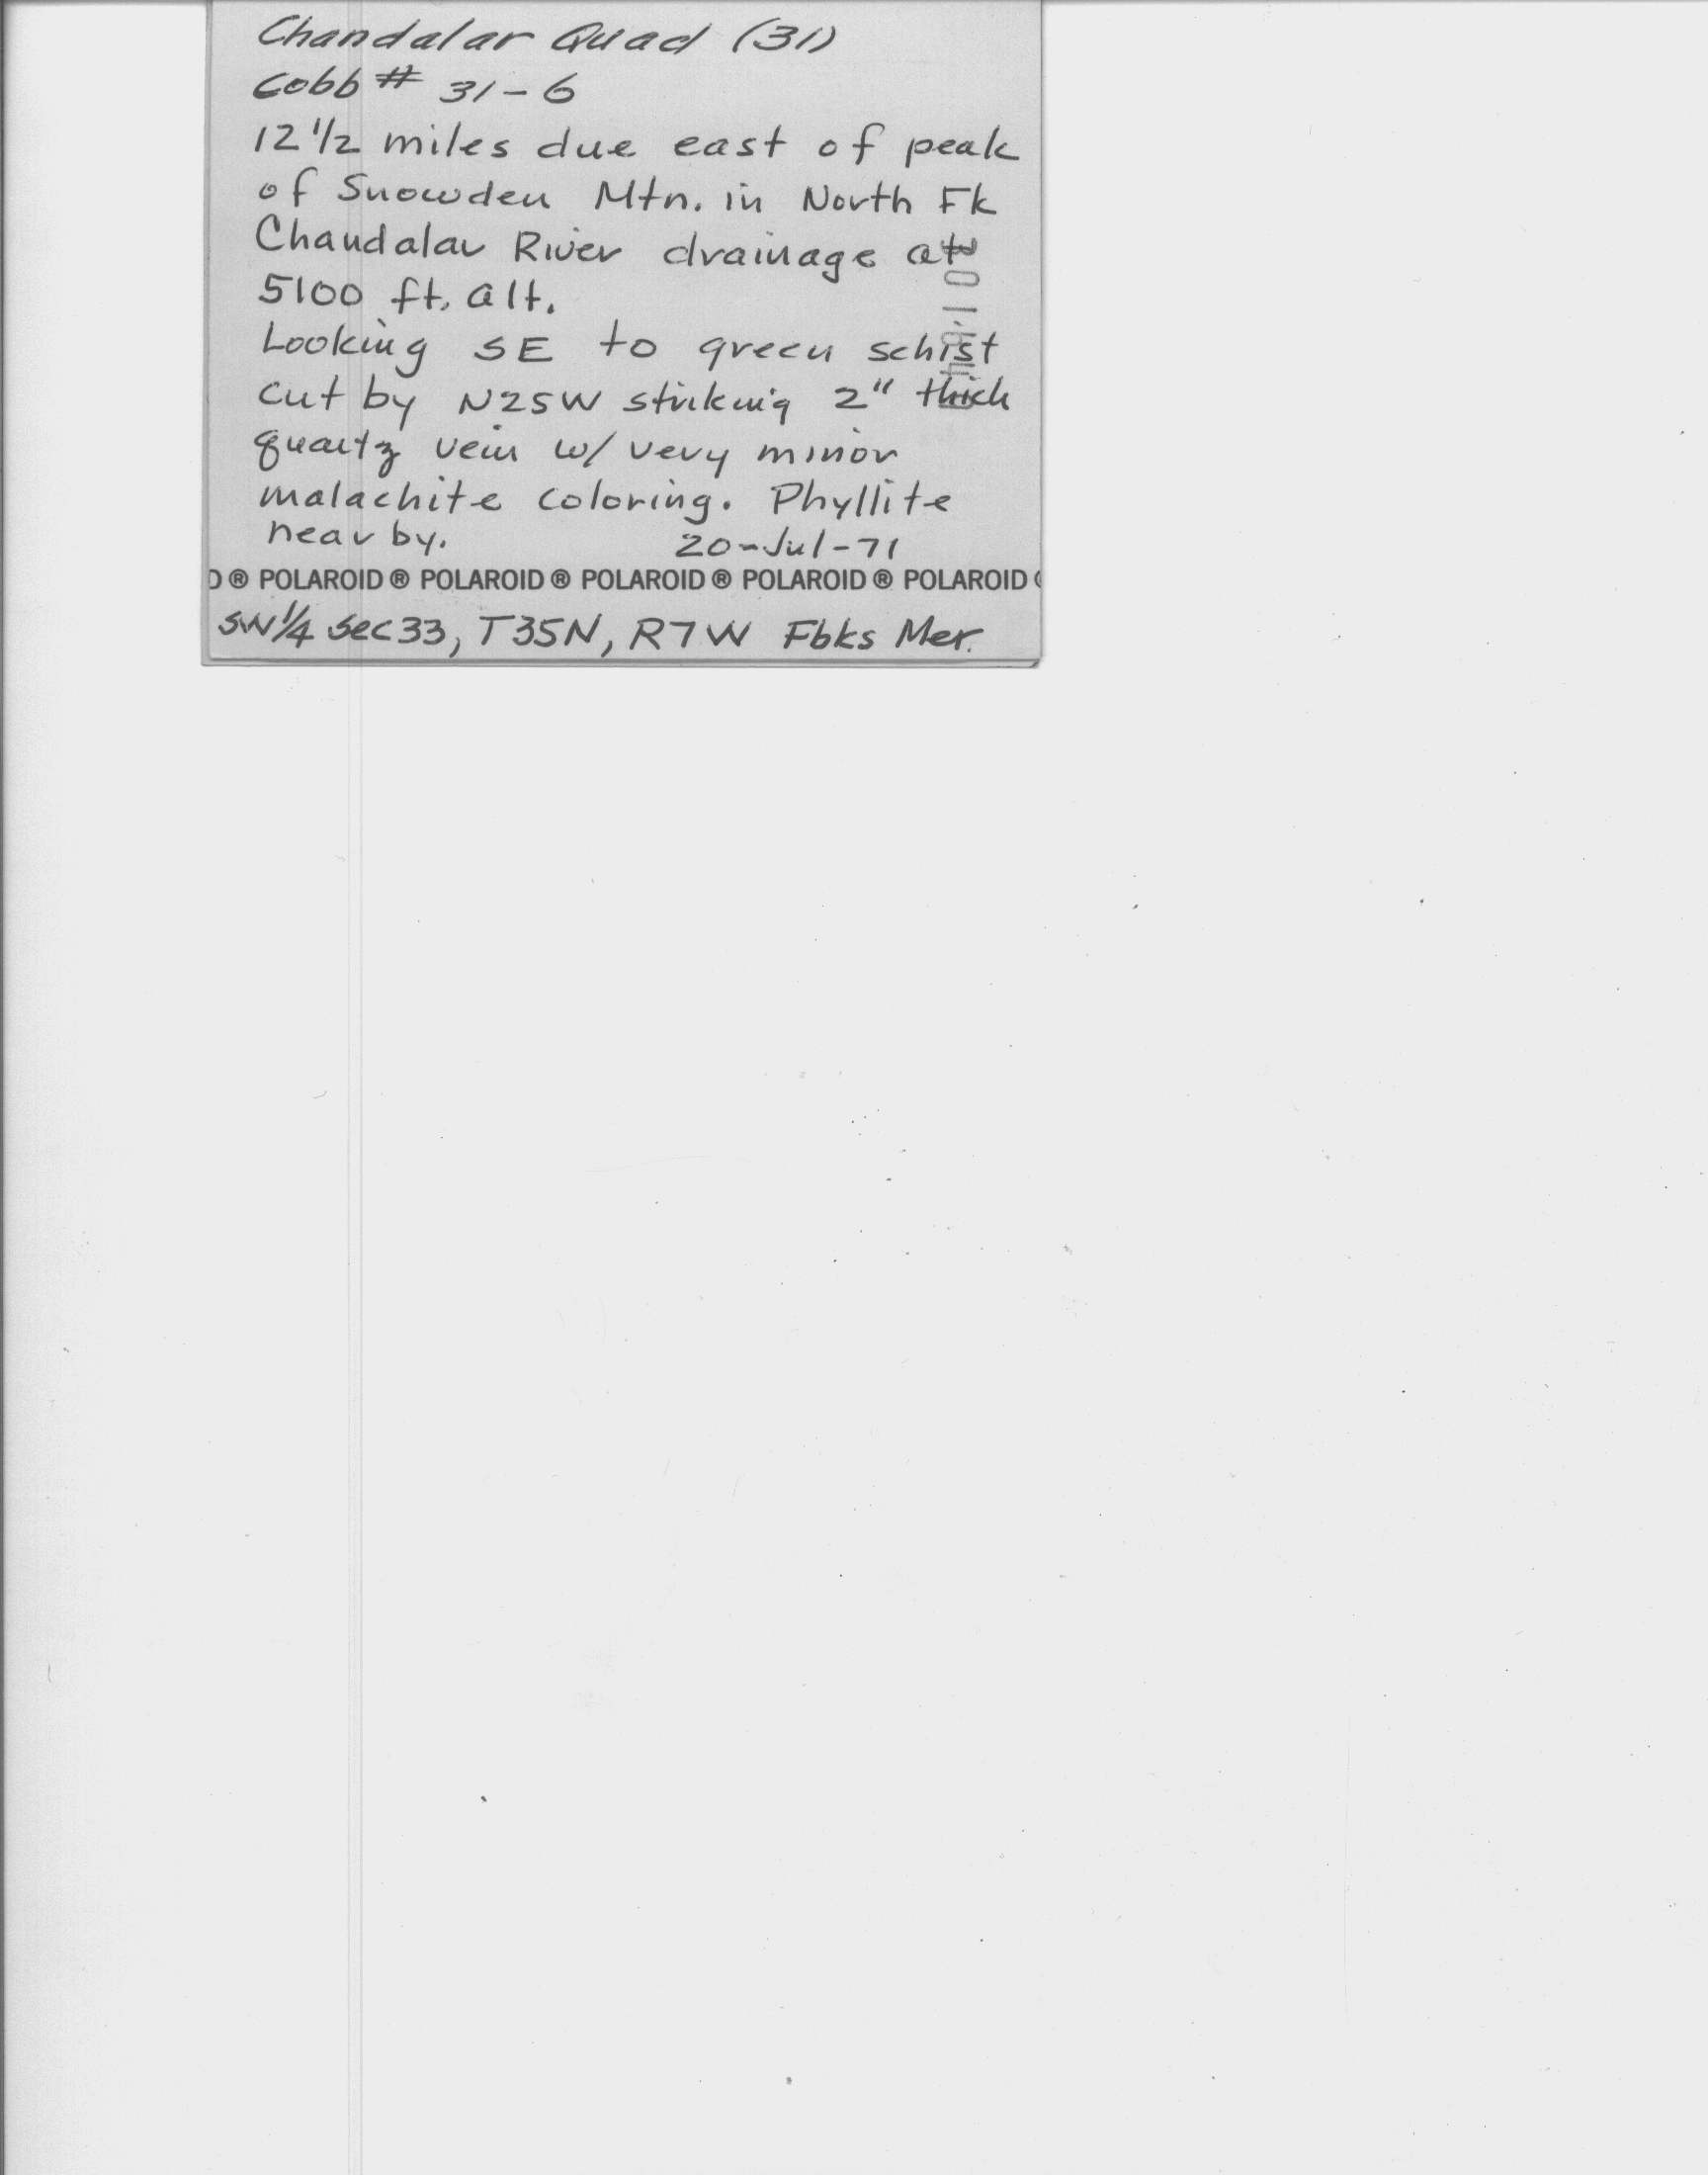 Chandalar Quad (31)
Cobb # 31-6
12 1/2 miles due east of peak
of Snowden Mtn. in North Fk
Chandalar River drainage at
5100 ft. alt.
Looking SE to green schist
cut by N25W striking 2" thick
quartz vein w/ very minor
malachite coloring. Phyllite
near by. 20-Jul-71
D ® POLAROID ® POLAROID ® POLAROID ® POLAROID ® POLAROID
SW 1/4 Sec 33, T35N, R7W Fbks Mer.